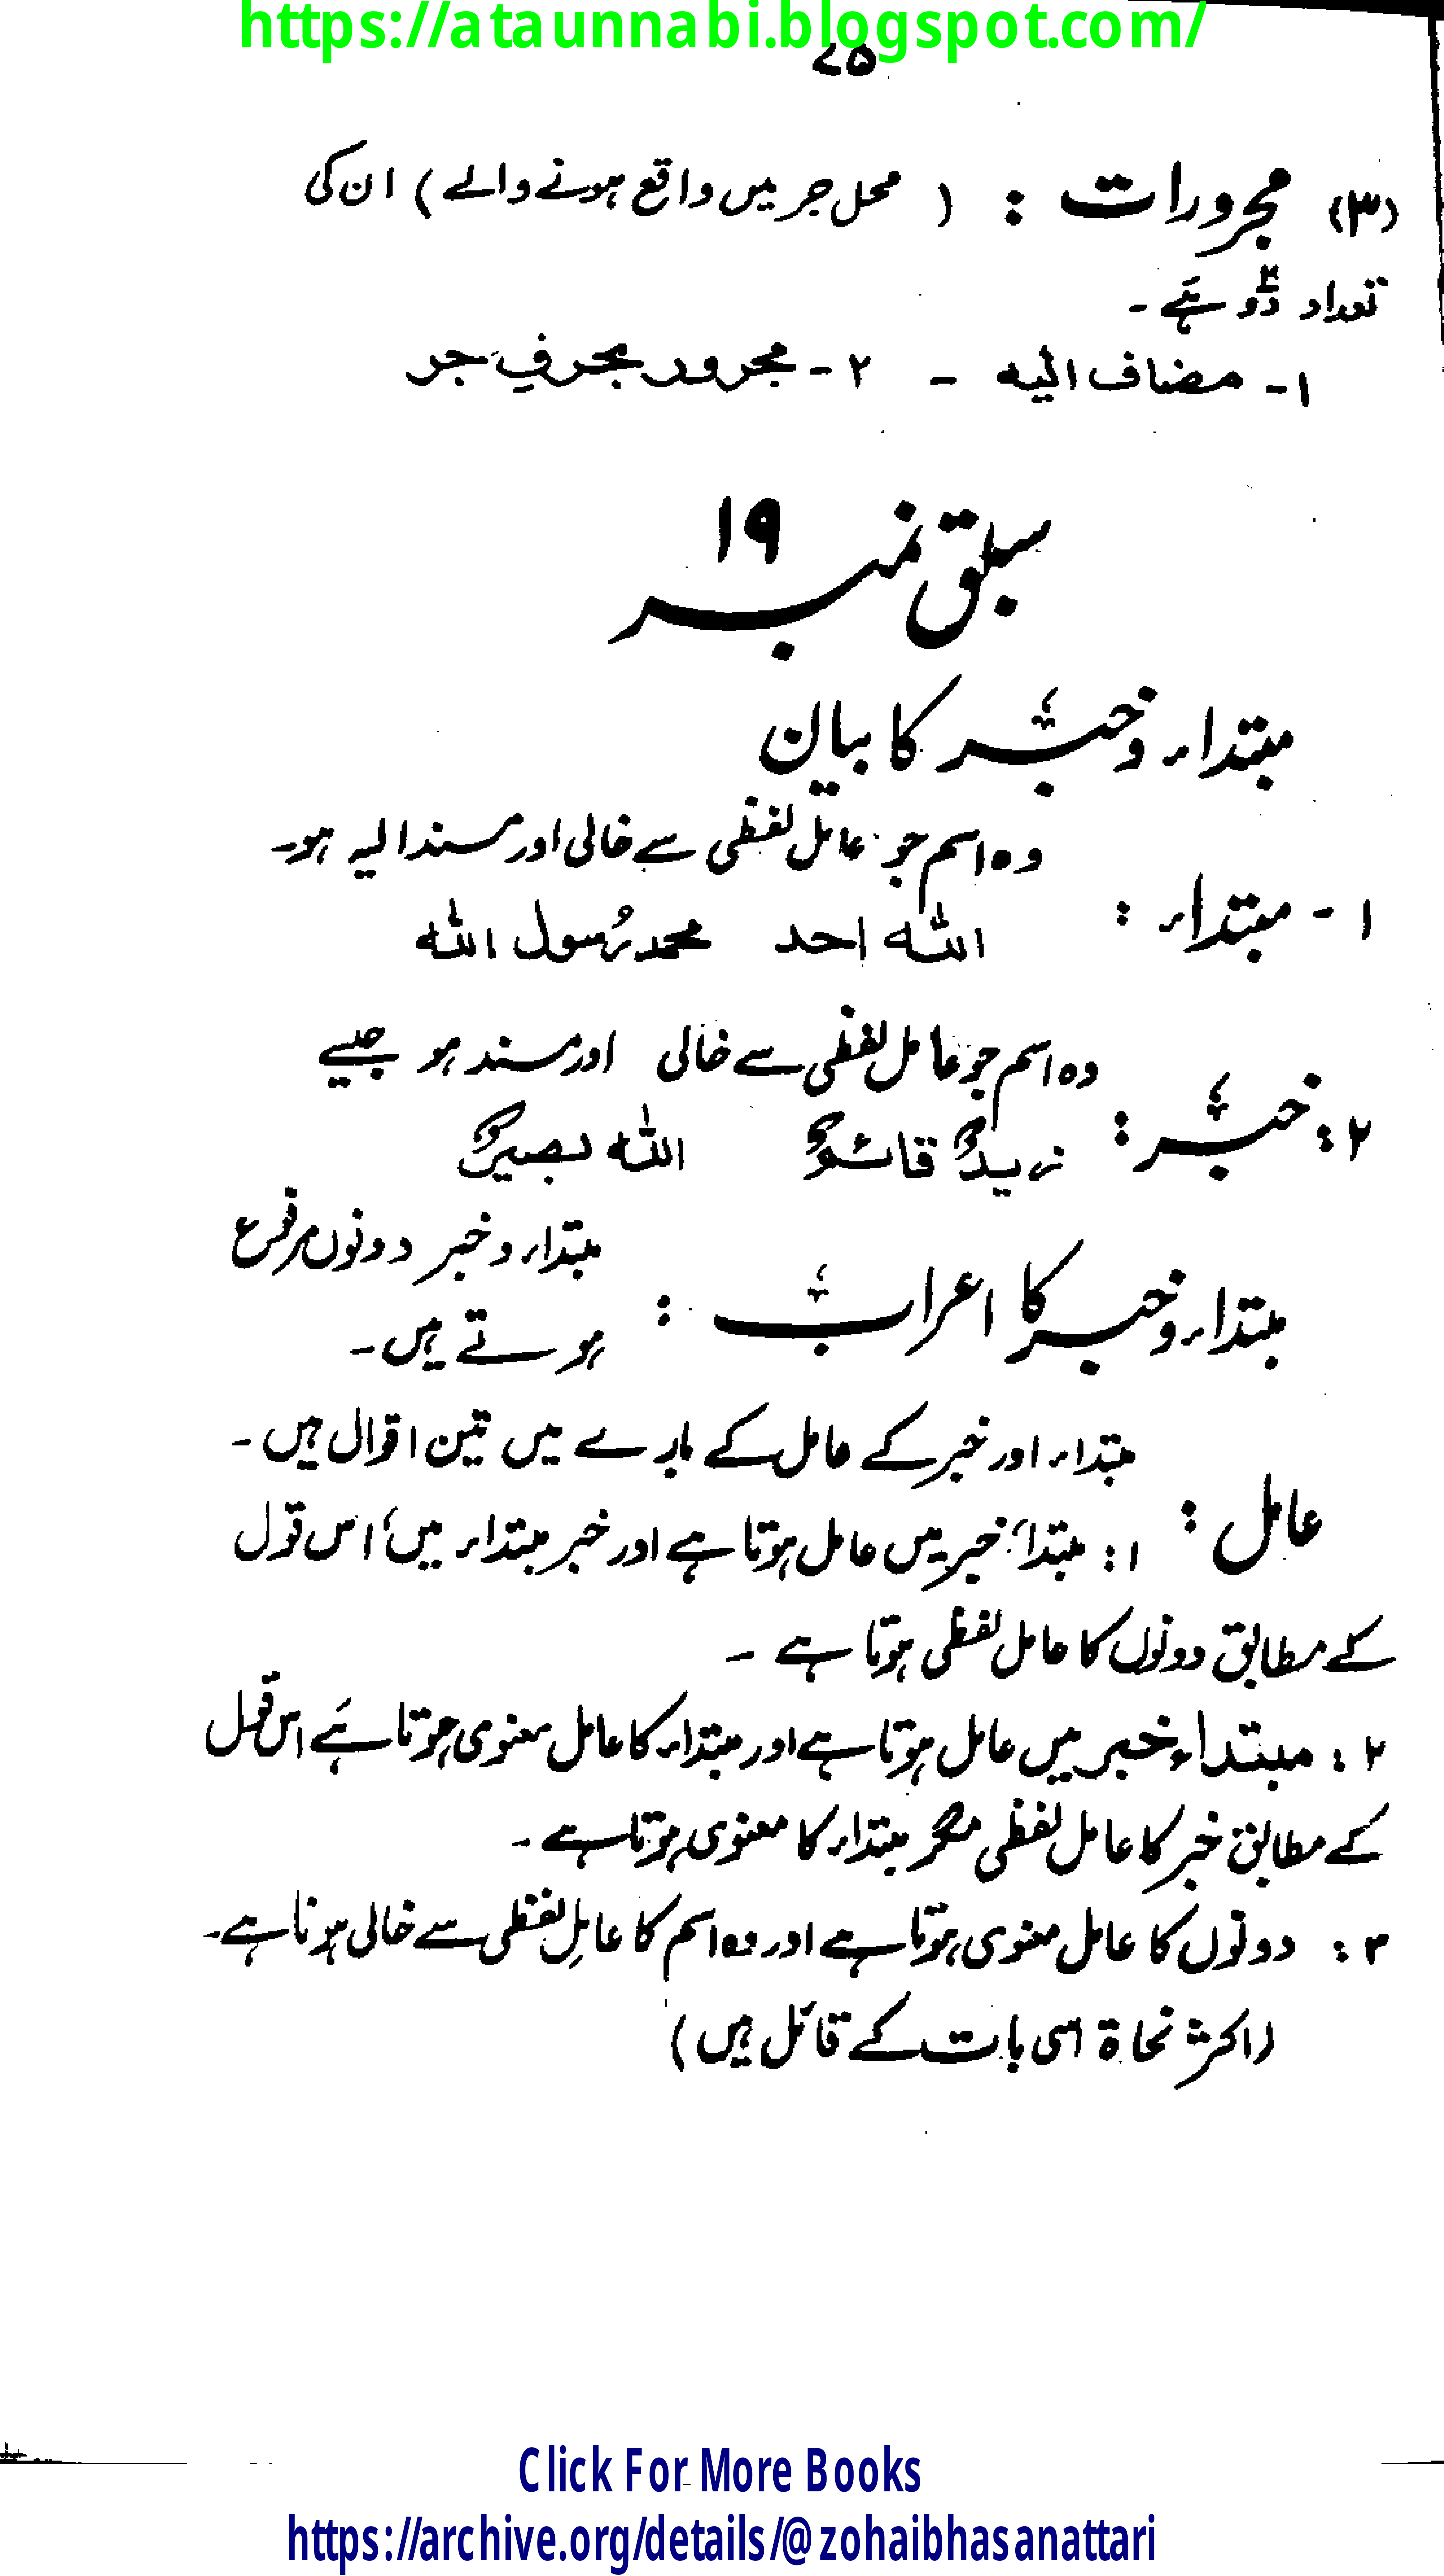 https://ataunnabi.blogspot.com/
۷۵
(۳) مجرورات : ( محل جر میں واقع ہونے والے ) ان کی
تعداد دو ہے ۔
۱- مضاف الیہ - ۲- مجرور بحرفِ جر
سبق نمبر ۱۹
مبتداء و خبر کا بیان
وہ اسم جو عامل لفظی سے خالی اور مسند الیہ ہو۔
۱ - مبتداء :
اللہ احد محمد رُسول اللہ
وہ اسم جو عامل لفظی سے خالی اور مسند ہو جیسے
۲ : خبر :
زیدٌ قائمٌ اللہ بصیرٌ
مبتداء و خبر دونوں مرفوع
مبتداء و خبر کا اعراب :
ہوتے ہیں۔
مبتداء اور خبر کے عامل کے بارے میں تین اقوال ہیں ۔
عامل :
۱ : مبتداء خبر میں عامل ہوتا ہے اور خبر مبتداء میں، اس قول
کے مطابق دونوں کا عامل لفظی ہوتا ہے ۔
۲ : مبتداء خبر میں عامل ہوتا ہے اور مبتداء کا عامل معنوی ہوتا ہے اس قول
کے مطابق خبر کا عامل لفظی مگر مبتداء کا معنوی ہوتا ہے ۔
۳ : دونوں کا عامل معنوی ہوتا ہے اور وہ اسم کا عاملِ لفظی سے خالی ہونا ہے۔
(اکثر نحاۃ اسی بات کے قائل ہیں)
Click For More Books
https://archive.org/details/@zohaibhasanattari